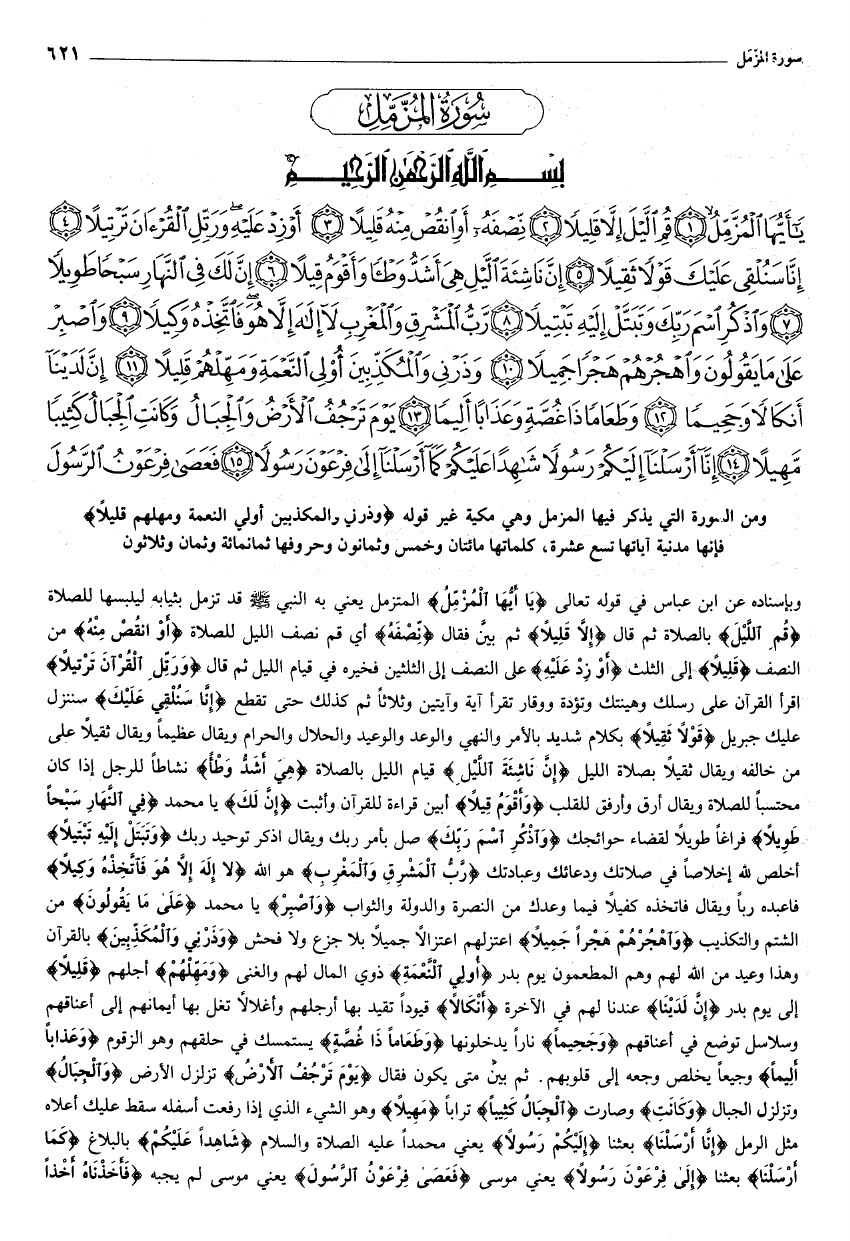 سورة المزّمل ٦٢١
سُورَةُ المُزَّمِّلِ
بِسْمِ اللَّهِ الرَّحْمَٰنِ الرَّحِيمِ
يَٰٓأَيُّهَا ٱلْمُزَّمِّلُ ﴿١﴾ قُمِ ٱلَّيْلَ إِلَّا قَلِيلًا ﴿٢﴾ نِّصْفَهُۥٓ أَوِ ٱنقُصْ مِنْهُ قَلِيلًا ﴿٣﴾ أَوْ زِدْ عَلَيْهِ وَرَتِّلِ ٱلْقُرْءَانَ تَرْتِيلًا ﴿٤﴾
إِنَّا سَنُلْقِى عَلَيْكَ قَوْلًا ثَقِيلًا ﴿٥﴾ إِنَّ نَاشِئَةَ ٱلَّيْلِ هِىَ أَشَدُّ وَطْـًٔا وَأَقْوَمُ قِيلًا ﴿٦﴾ إِنَّ لَكَ فِى ٱلنَّهَارِ سَبْحًا طَوِيلًا
﴿٧﴾ وَٱذْكُرِ ٱسْمَ رَبِّكَ وَتَبَتَّلْ إِلَيْهِ تَبْتِيلًا ﴿٨﴾ رَّبُّ ٱلْمَشْرِقِ وَٱلْمَغْرِبِ لَآ إِلَٰهَ إِلَّا هُوَ فَٱتَّخِذْهُ وَكِيلًا ﴿٩﴾ وَٱصْبِرْ
عَلَىٰ مَا يَقُولُونَ وَٱهْجُرْهُمْ هَجْرًا جَمِيلًا ﴿١٠﴾ وَذَرْنِى وَٱلْمُكَذِّبِينَ أُو۟لِى ٱلنَّعْمَةِ وَمَهِّلْهُمْ قَلِيلًا ﴿١١﴾ إِنَّ لَدَيْنَآ
أَنكَالًا وَجَحِيمًا ﴿١٢﴾ وَطَعَامًا ذَا غُصَّةٍ وَعَذَابًا أَلِيمًا ﴿١٣﴾ يَوْمَ تَرْجُفُ ٱلْأَرْضُ وَٱلْجِبَالُ وَكَانَتِ ٱلْجِبَالُ كَثِيبًا
مَّهِيلًا ﴿١٤﴾ إِنَّآ أَرْسَلْنَآ إِلَيْكُمْ رَسُولًا شَٰهِدًا عَلَيْكُمْ كَمَآ أَرْسَلْنَآ إِلَىٰ فِرْعَوْنَ رَسُولًا ﴿١٥﴾ فَعَصَىٰ فِرْعَوْنُ ٱلرَّسُولَ
ومن السورة التي يذكر فيها المزمل وهي مكية غير قوله ﴿وذرني والمكذبين أولي النعمة ومهلهم قليلاً﴾
فإنها مدنية آياتها تسع عشرة، كلماتها مائتان وخمس وثمانون وحروفها ثمانمائة وثمان وثلاثون
وبإسناده عن ابن عباس في قوله تعالى ﴿يَا أَيُّهَا ٱلْمُزَّمِّلُ﴾ المتزمل يعني به النبي ﷺ قد تزمل بثيابه ليلبسها للصلاة
﴿قُمِ ٱللَّيْلَ﴾ بالصلاة ثم قال ﴿إِلَّا قَلِيلاً﴾ ثم بيّن فقال ﴿نِّصْفَهُ﴾ أي قم نصف الليل للصلاة ﴿أَوْ انقُصْ مِنْهُ﴾ من
النصف ﴿قَلِيلاً﴾ إلى الثلث ﴿أَوْ زِدْ عَلَيْهِ﴾ على النصف إلى الثلثين فخيره في قيام الليل ثم قال ﴿وَرَتِّلِ ٱلْقُرْآنَ تَرْتِيلاً﴾
اقرأ القرآن على رسلك وهينتك وتؤدة ووقار تقرأ آية وآيتين وثلاثاً ثم كذلك حتى تقطع ﴿إِنَّا سَنُلْقِي عَلَيْكَ﴾ سننزل
عليك جبريل ﴿قَوْلاً ثَقِيلاً﴾ بكلام شديد بالأمر والنهي والوعد والوعيد والحلال والحرام ويقال عظيماً ويقال ثقيلاً على
من خالفه ويقال ثقيلاً بصلاة الليل ﴿إِنَّ نَاشِئَةَ ٱللَّيْلِ﴾ قيام الليل بالصلاة ﴿هِيَ أَشَدُّ وَطْأً﴾ نشاطاً للرجل إذا كان
محتسباً للصلاة ويقال أرق وأرفق للقلب ﴿وَأَقْوَمُ قِيلاً﴾ أبين قراءة للقرآن وأثبت ﴿إِنَّ لَكَ﴾ يا محمد ﴿فِي ٱلنَّهَارِ سَبْحاً
طَوِيلاً﴾ فراغاً طويلاً لقضاء حوائجك ﴿وَٱذْكُرِ ٱسْمَ رَبِّكَ﴾ صل بأمر ربك ويقال اذكر توحيد ربك ﴿وَتَبَتَّلْ إِلَيْهِ تَبْتِيلاً﴾
أخلص لله إخلاصاً في صلاتك ودعائك وعبادتك ﴿رَّبُّ ٱلْمَشْرِقِ وَٱلْمَغْرِبِ﴾ هو الله ﴿لا إِلَهَ إِلَّا هُوَ فَٱتَّخِذْهُ وَكِيلاً﴾
فاعبده رباً ويقال فاتخذه كفيلاً فيما وعدك من النصرة والدولة والثواب ﴿وَٱصْبِرْ﴾ يا محمد ﴿عَلَىٰ مَا يَقُولُونَ﴾ من
الشتم والتكذيب ﴿وَٱهْجُرْهُمْ هَجْراً جَمِيلاً﴾ اعتزلهم اعتزالاً جميلاً بلا جزع ولا فحش ﴿وَذَرْنِي وَٱلْمُكَذِّبِينَ﴾ بالقرآن
وهذا وعيد من الله لهم وهم المطعمون يوم بدر ﴿أُولِي ٱلنَّعْمَةِ﴾ ذوي المال لهم والغنى ﴿وَمَهِّلْهُمْ﴾ أجلهم ﴿قَلِيلاً﴾
إلى يوم بدر ﴿إِنَّ لَدَيْنَا﴾ عندنا لهم في الآخرة ﴿أَنْكَالاً﴾ قيوداً تقيد بها أرجلهم وأغلالاً تغل بها أيمانهم إلى أعناقهم
وسلاسل توضع في أعناقهم ﴿وَجَحِيماً﴾ ناراً يدخلونها ﴿وَطَعَاماً ذَا غُصَّةٍ﴾ يستمسك في حلقهم وهو الزقوم ﴿وَعَذَاباً
أَلِيماً﴾ وجيعاً يخلص وجعه إلى قلوبهم. ثم بيّن متى يكون فقال ﴿يَوْمَ تَرْجُفُ ٱلأَرْضُ﴾ تزلزل الأرض ﴿وَٱلْجِبَالُ﴾
وتزلزل الجبال ﴿وَكَانَتِ﴾ وصارت ﴿ٱلْجِبَالُ كَثِيباً﴾ تراباً ﴿مَهِيلاً﴾ وهو الشيء الذي إذا رفعت أسفله سقط عليك أعلاه
مثل الرمل ﴿إِنَّا أَرْسَلْنَا﴾ بعثنا ﴿إِلَيْكُمْ رَسُولاً﴾ يعني محمداً عليه الصلاة والسلام ﴿شَاهِداً عَلَيْكُمْ﴾ بالبلاغ ﴿كَمَا
أَرْسَلْنَا﴾ بعثنا ﴿إِلَىٰ فِرْعَوْنَ رَسُولاً﴾ يعني موسى ﴿فَعَصَىٰ فِرْعَوْنُ ٱلرَّسُولَ﴾ يعني موسى لم يجبه ﴿فَأَخَذْنَاهُ أَخْذاً